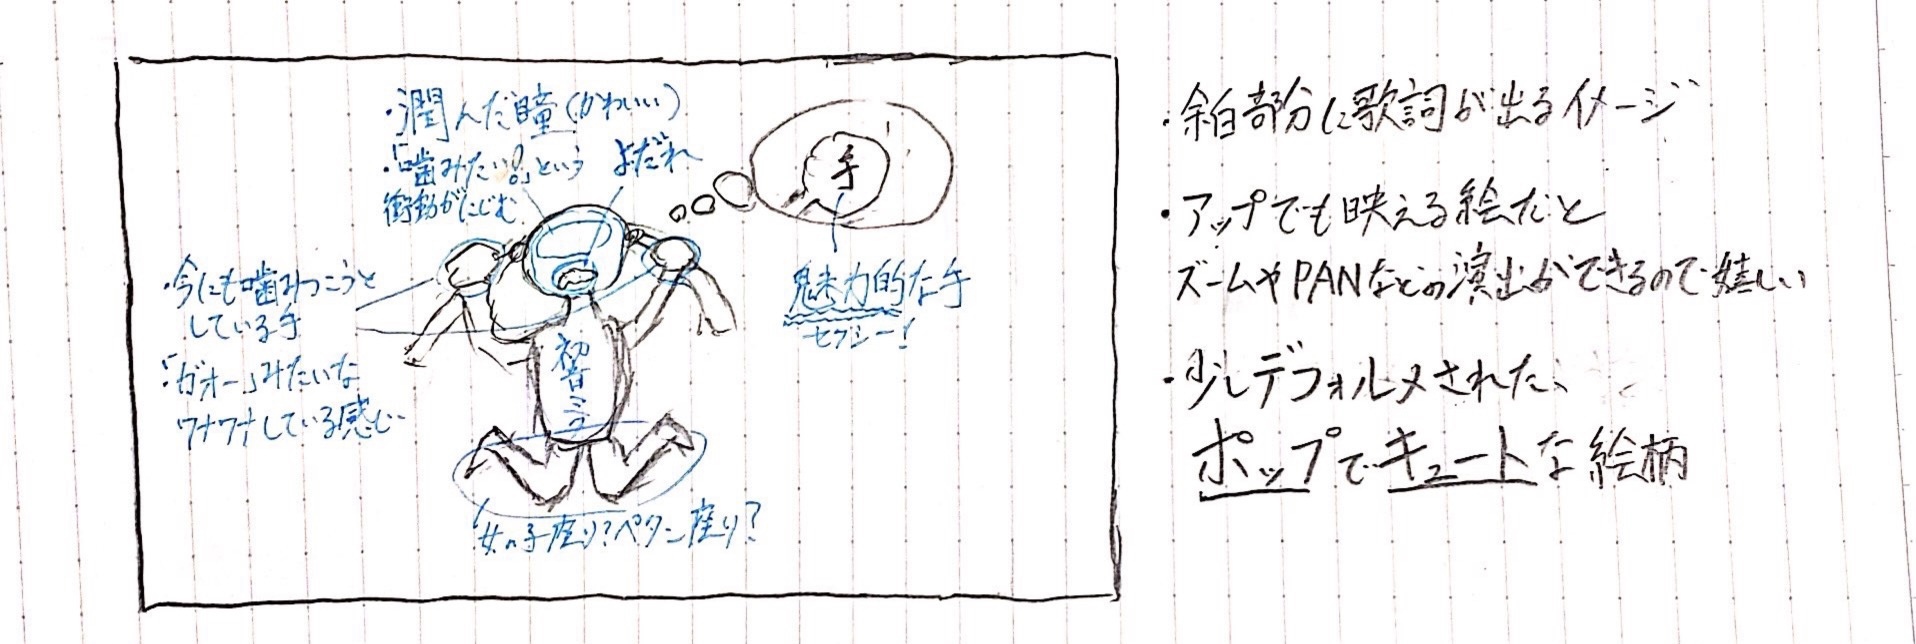 ・潤んだ瞳(かわいい)
・「噛みたい!」という
衝動がにじむ
よだれ
手
魅力的な手
セクシー!
・今にも噛みつこうと
している手
「ガオー」みたいな
ワナワナしている感じ
初音ミク
女の子座り?ペタン座り?
・余白部分に歌詞が出るイメージ
・アップでも映える絵だと
ズームやPANなどの演出ができるので嬉しい
・少しデフォルメされた、
ポップでキュートな絵柄